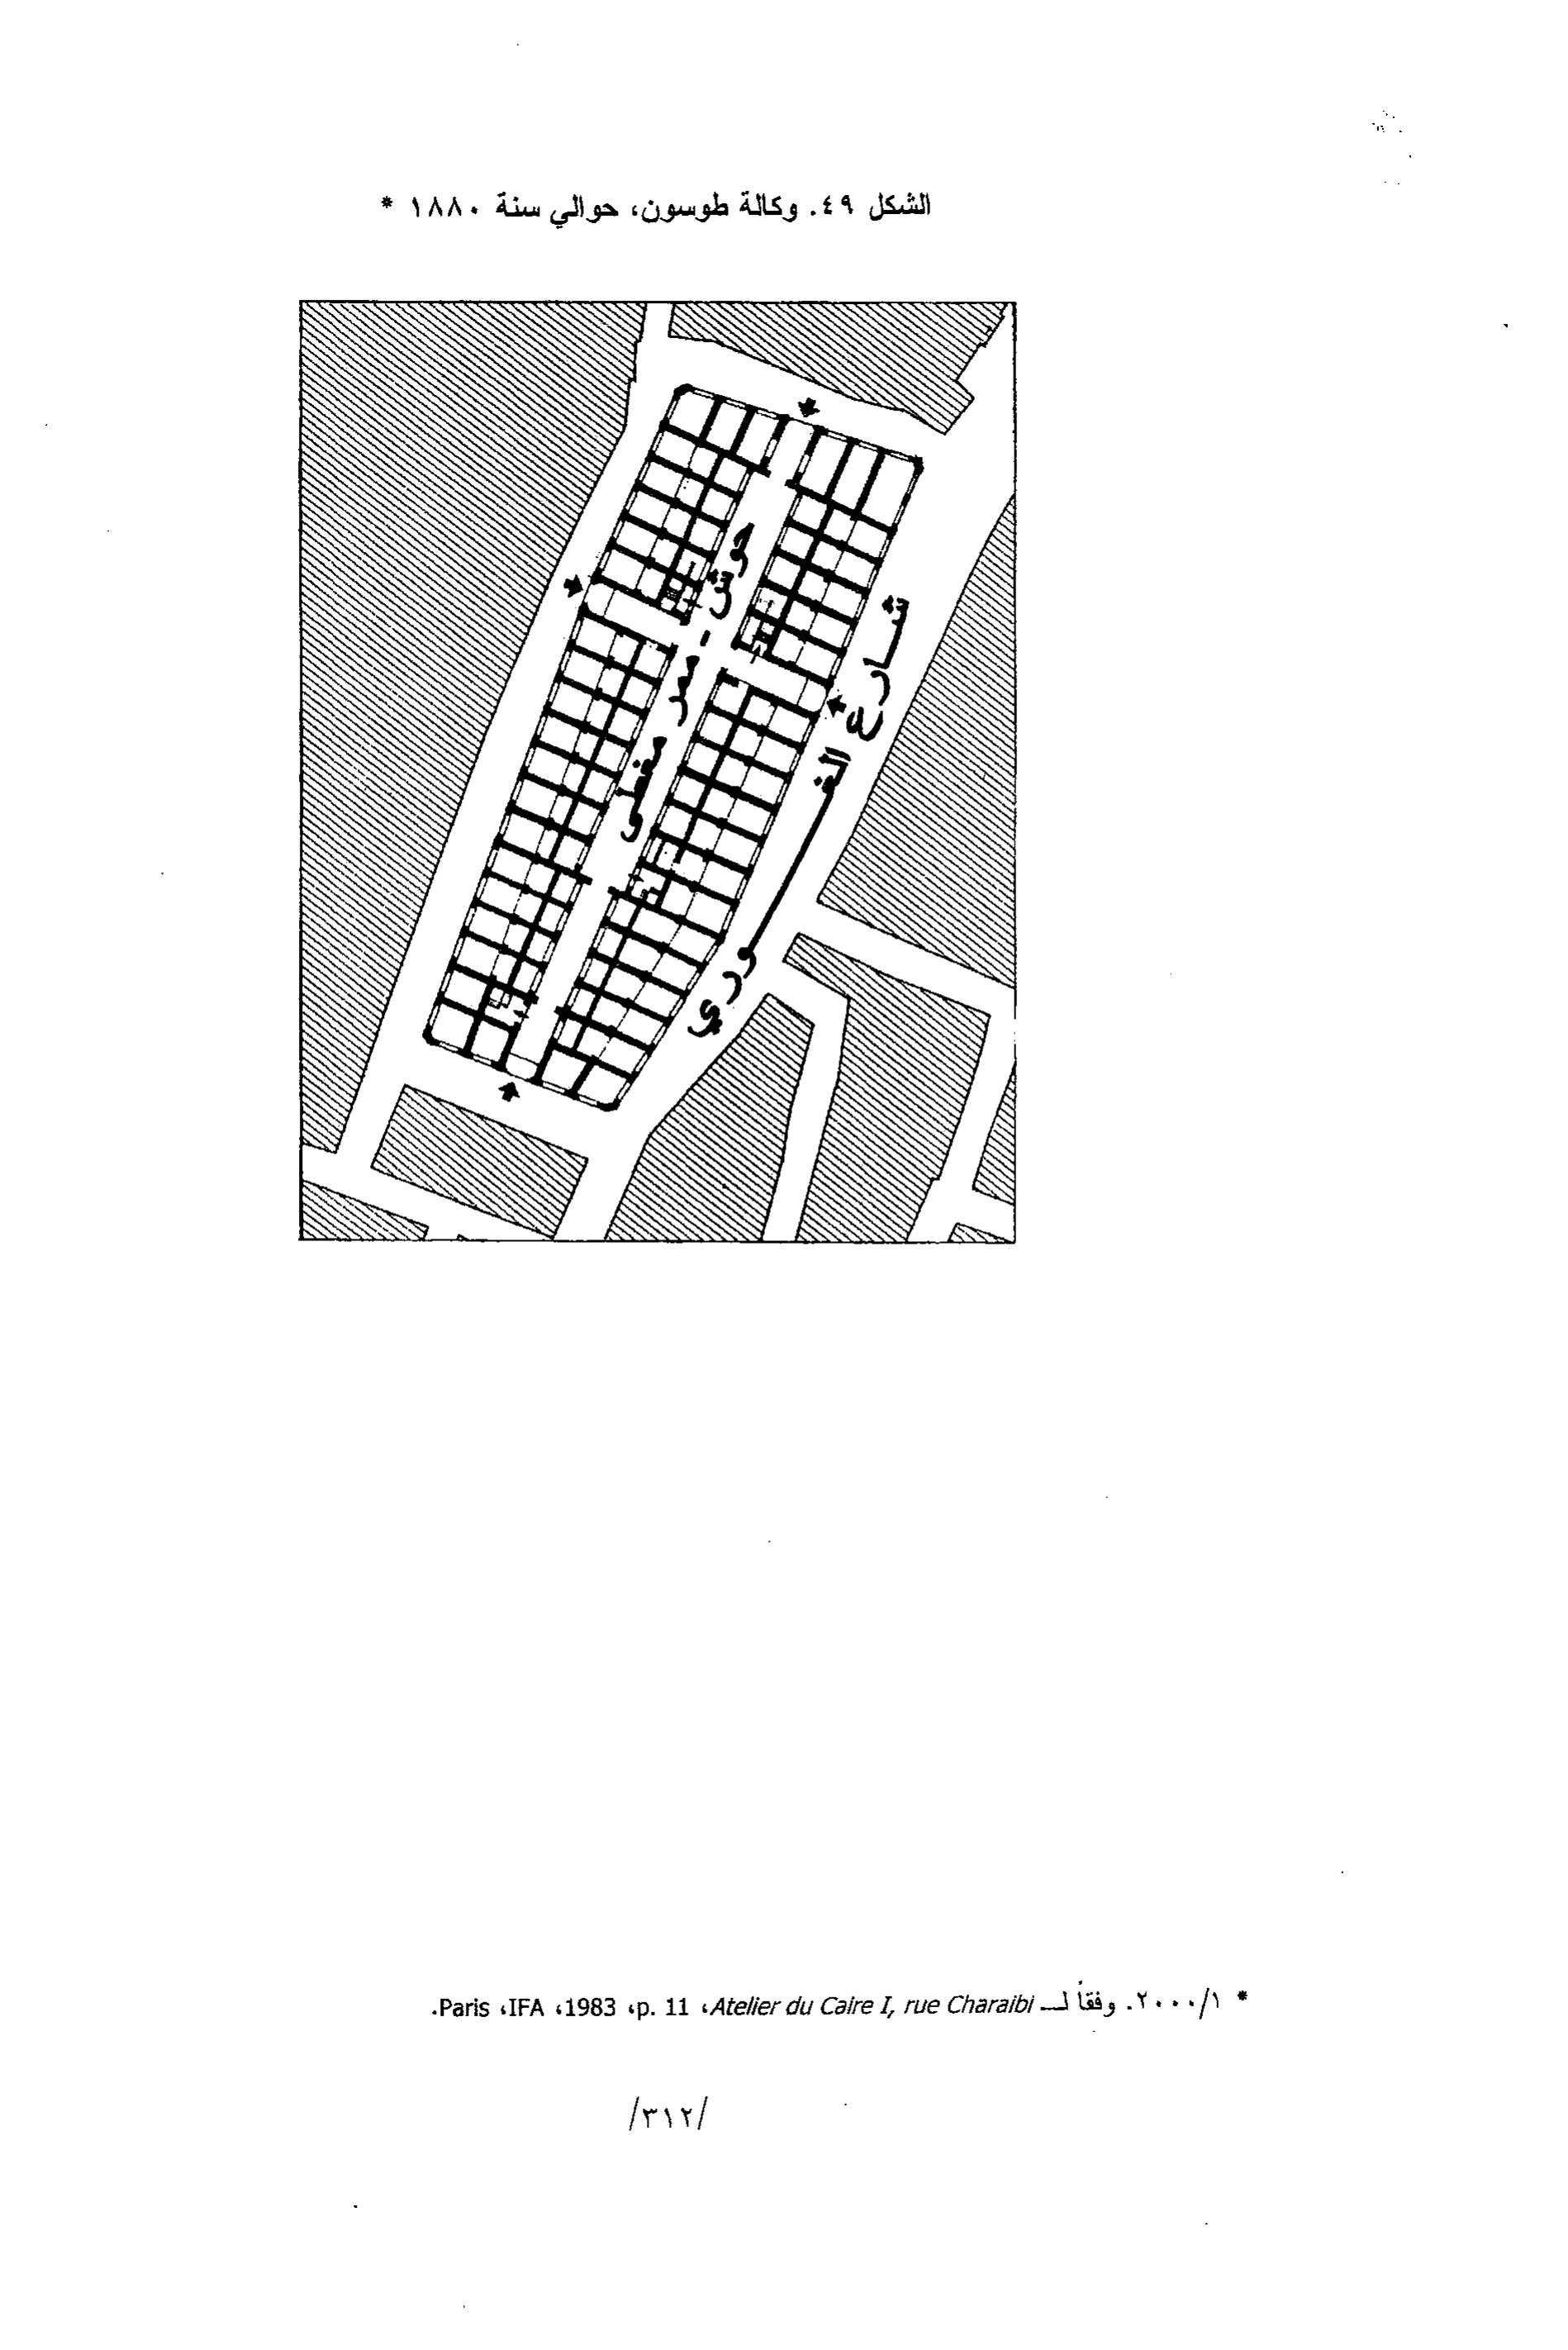 الشكل ٤٩. وكالة طوسون، حوالي سنة ١٨٨٠ *
حوش - ممر مغطى
شارع الغوري
* ٢٠٠٠/١. وفقاً لـ Atelier du Caire I, rue Charaibi، p. 11، 1983، IFA، Paris.
/٣١٢/